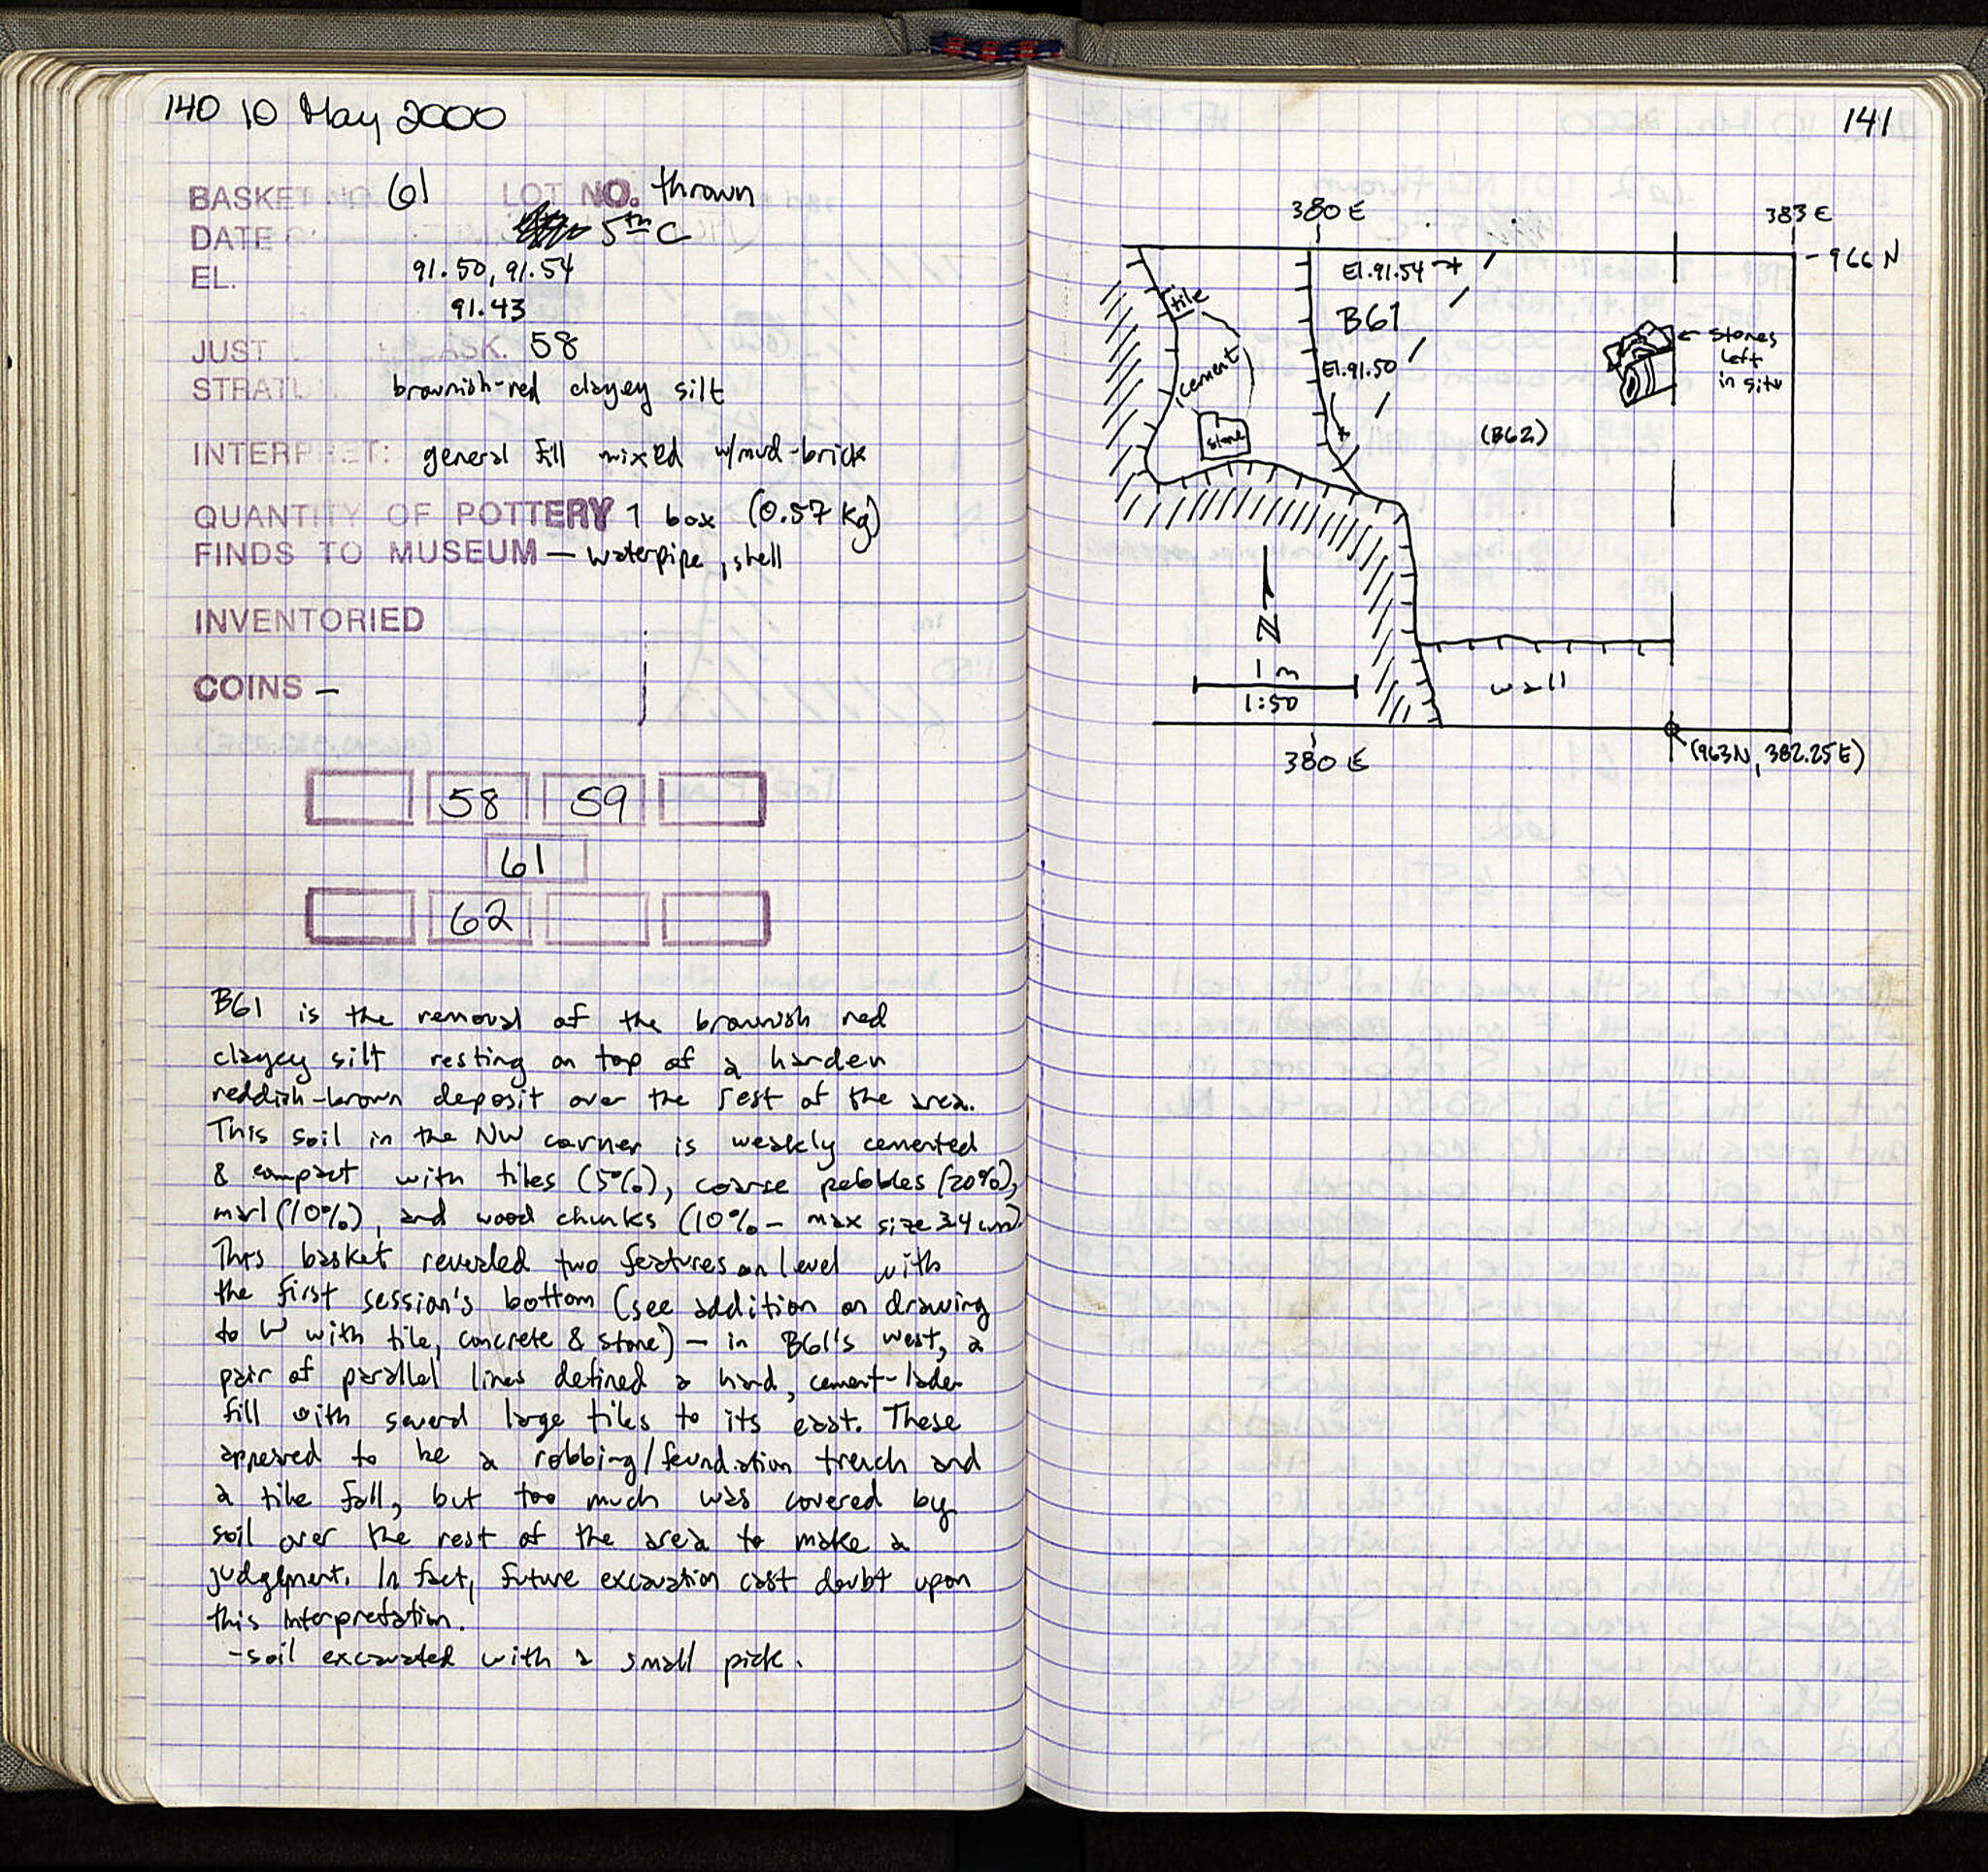 140 10 May 2000
BASKET NO. 61 LOT NO. thrown
DATE 5th C
EL. 91.50, 91.54
91.43
JUST ASK. 58
STRATU brownish-red clayey silt
INTERPRET: general fill mixed w/mud-brick
QUANTITY OF POTTERY 1 box (0.57 kg)
FINDS TO MUSEUM — waterpipe, shell
INVENTORIED
COINS –
58 59
61
62
B61 is the removal of the brownish red
clayey silt resting on top of a harder
reddish-brown deposit over the rest of the area.
This soil in the NW corner is weakly cemented
& compact with tiles (5%), coarse pebbles (20%),
marl (10%), and wood chunks (10% – max size 3.4 cm).
This basket revealed two features on level with
the first session's bottom (see addition on drawing
to W with tile, concrete & stone) – in B61's west, a
pair of parallel lines defined a hard, cement-laden
fill with several large tiles to its east. These
appeared to be a robbing/foundation trench and
a tile fall, but too much was covered by
soil over the rest of the area to make a
judgement. In fact, future excavation cast doubt upon
this interpretation.
-soil excavated with a small pick.
141
380 E 383 E
966 N
El. 91.54
tile
B61
cement
El. 91.50
stones
left
in situ
stone
(B62)
N
1 m
1:50
wall
380 E
(963N, 382.25E)